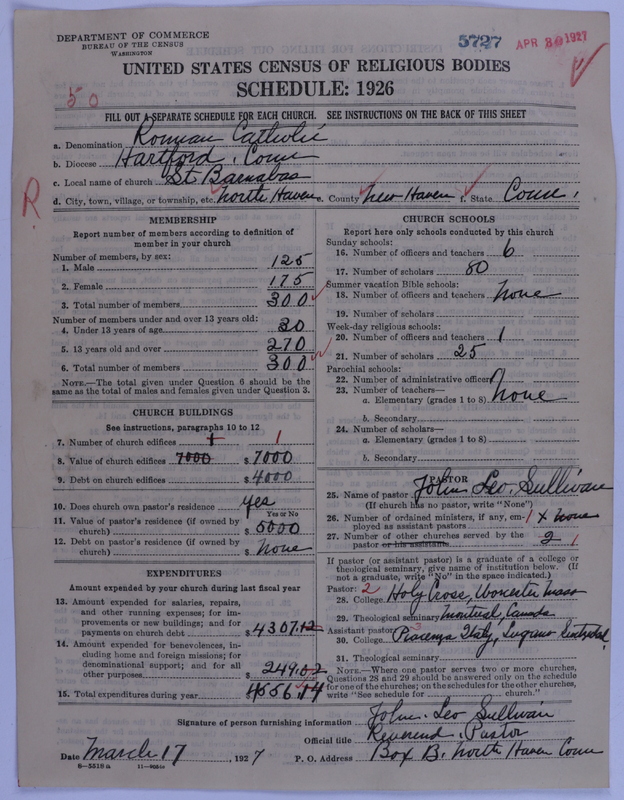 DEPARTMENT OF COMMERCE
BUREAU OF THE CENSUS
WASHINGTON
5727
APR 30 1927
UNITED STATES CENSUS OF RELIGIOUS BODIES
SCHEDULE: 1926
50
FILL OUT A SEPARATE SCHEDULE FOR EACH CHURCH. SEE INSTRUCTIONS ON THE BACK OF THIS SHEET
a. Denomination Roman Catholic
b. Diocese Hartford, Conn
c. Local name of church St Barnabas
R
d. City, town, village, or township, etc. North Haven e. County New Haven f. State Conn.
MEMBERSHIP
Report number of members according to definition of
member in your church
Number of members, by sex:
1. Male 125
2. Female 175
3. Total number of members 300
Number of members under and over 13 years old:
4. Under 13 years of age 30
5. 13 years old and over 270
6. Total number of members 300
NOTE.—The total given under Question 6 should be
same as the total of males and females given under Question 3.
CHURCH BUILDINGS
See instructions, paragraphs 10 to 12
7. Number of church edifices 1 1
8. Value of church edifices 7000 $ 7000
9. Debt on church edifices $ 4000
10. Does church own pastor's residence yes
Yes or No
11. Value of pastor's residence (if owned by
church) $ 5000
12. Debt on pastor's residence (if owned by
church) $ None
EXPENDITURES
Amount expended by your church during last fiscal year
13. Amount expended for salaries, repairs,
and other running expenses; for im-
provements or new buildings; and for
payments on church debt $ 4307.12
14. Amount expended for benevolences, in-
cluding home and foreign missions; for
denominational support; and for all
other purposes $ 249.02
15. Total expenditures during year $ 4556.14
CHURCH SCHOOLS
Report here only schools conducted by this church
Sunday schools:
16. Number of officers and teachers 6
17. Number of scholars 80
Summer vacation Bible schools:
18. Number of officers and teachers None
19. Number of scholars
Week-day religious schools:
20. Number of officers and teachers 1
21. Number of scholars 25
Parochial schools:
22. Number of administrative officers
23. Number of teachers—
a. Elementary (grades 1 to 8) None
b. Secondary
24. Number of scholars—
a. Elementary (grades 1 to 8)
b. Secondary
PASTOR
25. Name of pastor John Leo Sullivan
(If church has no pastor, write "None")
26. Number of ordained ministers, if any, em-
ployed as assistant pastors 1 x None
27. Number of other churches served by the
pastor or his assistant 2 1
If pastor (or assistant pastor) is a graduate of a college or
theological seminary, give name of institution below. (If
not a graduate, write "No" in the space indicated.)
Pastor: 2
28. College Holy Cross, Worcester Mass
29. Theological seminary Montreal, Canada
Assistant pastor:
30. College Piacenza Italy,
31. Theological seminary
NOTE.—Where one pastor serves two or more churches,
Questions 28 and 29 should be answered only on the schedule
for one of the churches; on the schedules for the other churches,
write "See schedule for church."
Signature of person furnishing information John Leo Sullivan
Official title Reverend, Pastor
Date March 17, 1927 P. O. Address Box B. North Haven Conn
8—5518 a 11—9651